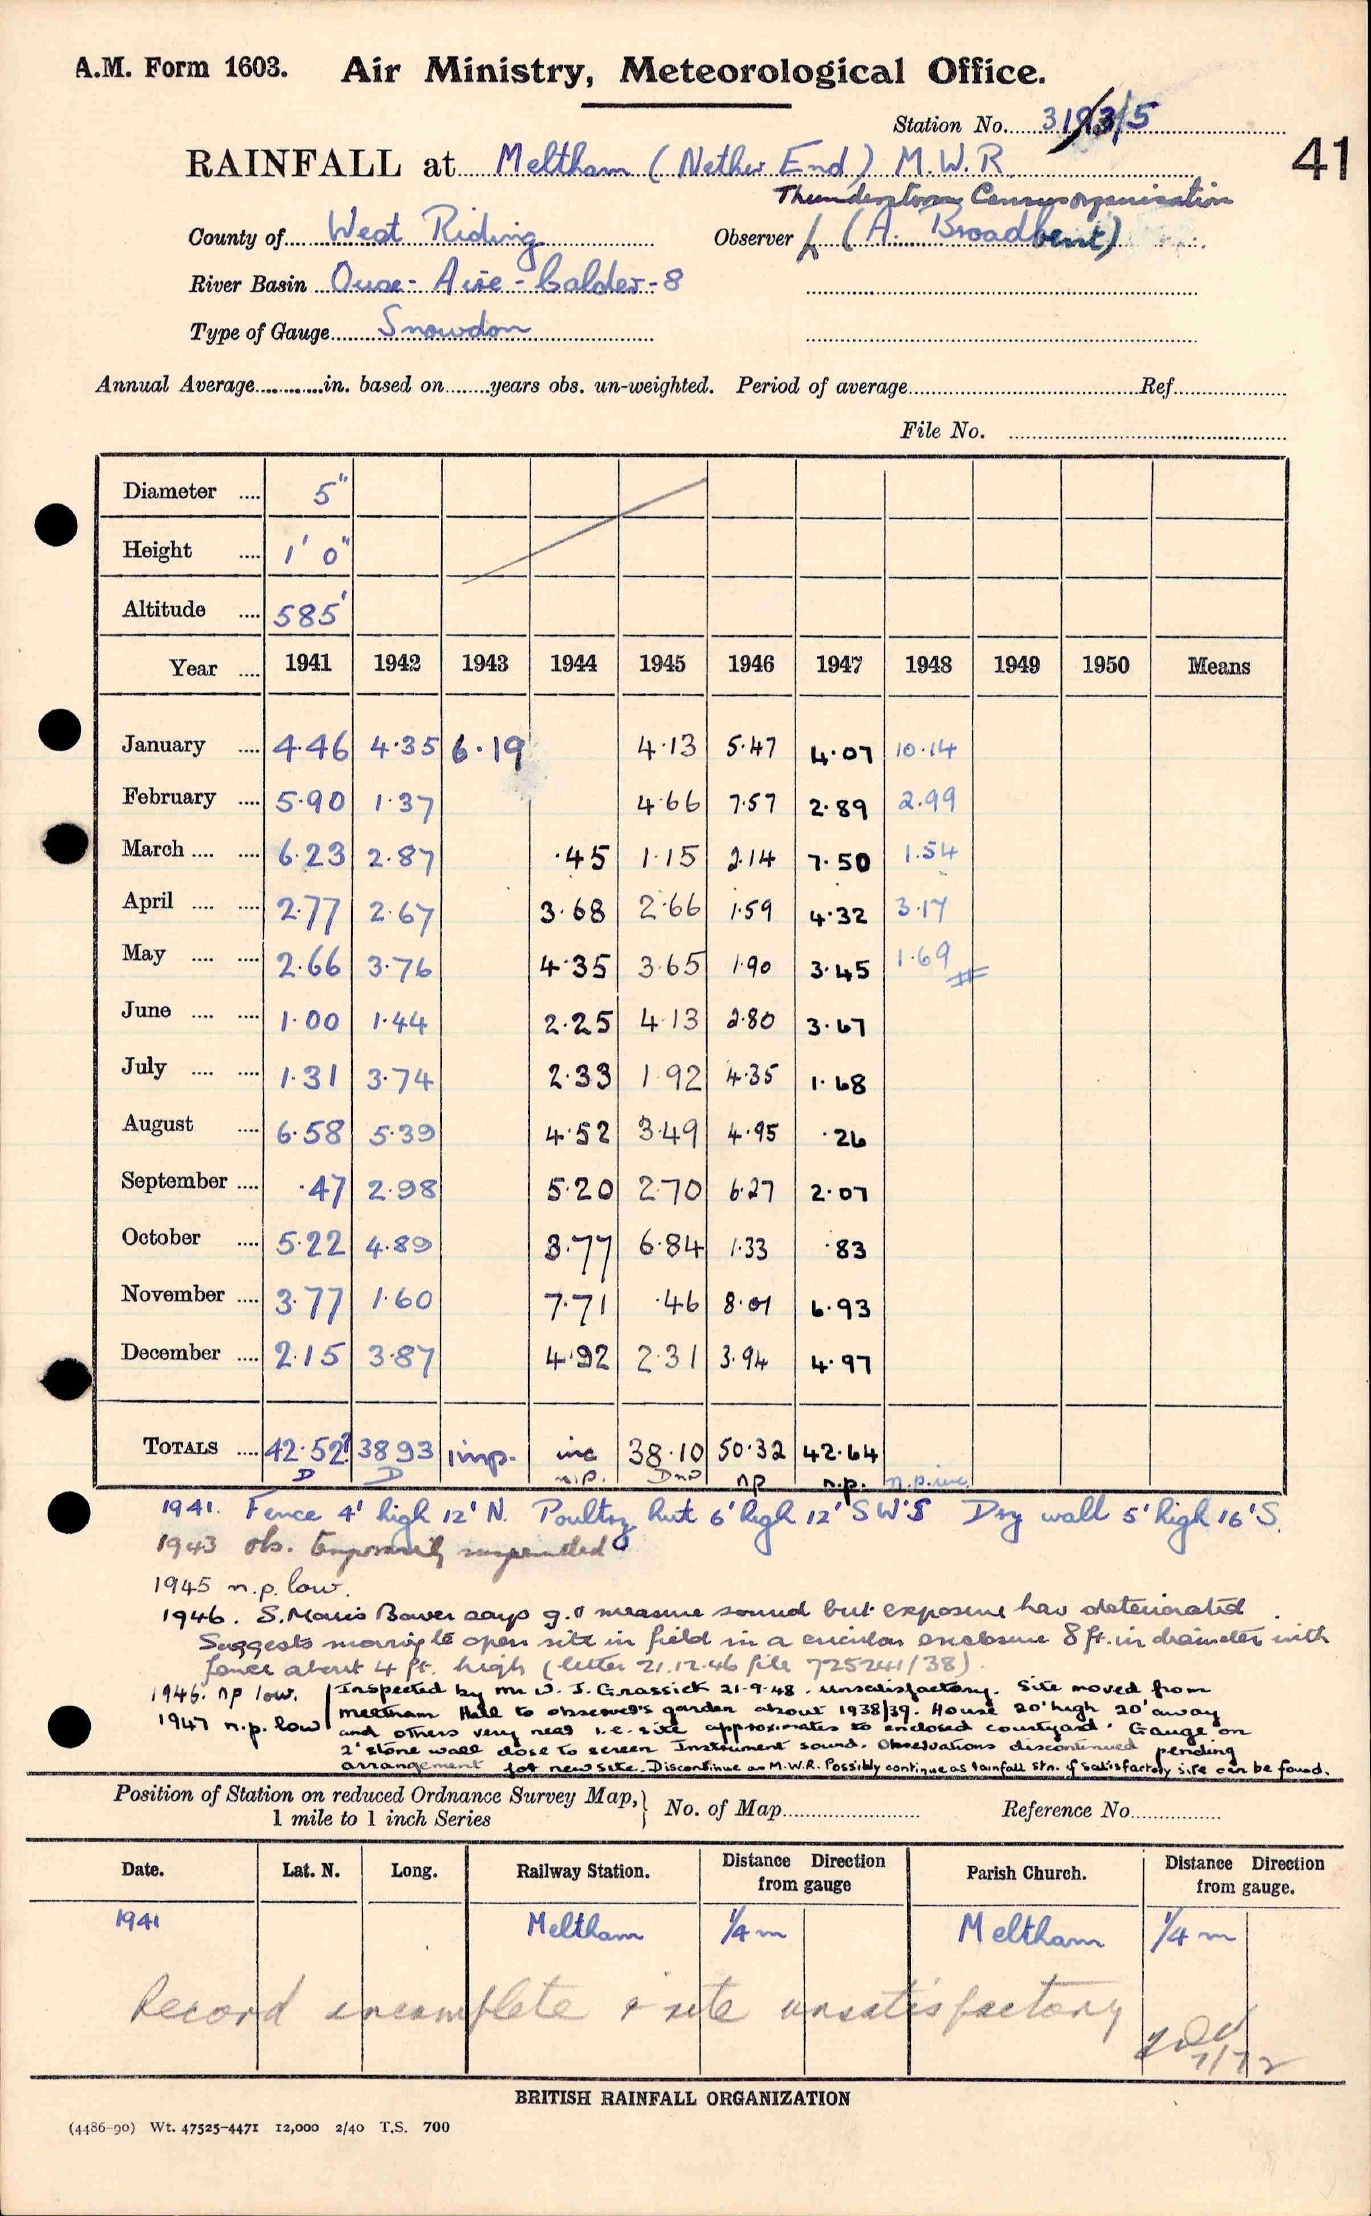 A.M. Form 1603. Air Ministry, Meteorological Office.
Station No. 3193/5
41
RAINFALL at Meltham (Nether End) M.W.R.
Thunderstorm Census organisation
County of West Riding Observer (A. Broadbent)
River Basin Ouse - Aire - Calder - 8
Type of Gauge Snowdon
Annual Average in. based on years obs. un-weighted. Period of average Ref.
File No.
Diameter 5"
Height 1' 0"
Altitude 585'
Year 1941 1942 1943 1944 1945 1946 1947 1948 1949 1950 Means
January 4.46 4.35 6.19 4.13 5.47 4.07 10.14
February 5.90 1.37 4.66 7.57 2.89 2.99
March 6.23 2.87 .45 1.15 2.14 7.50 1.54
April 2.77 2.67 3.68 2.66 1.59 4.32 3.17
May 2.66 3.76 4.35 3.65 1.90 3.45 1.69
June 1.00 1.44 2.25 4.13 2.80 3.67
July 1.31 3.74 2.33 1.92 4.35 1.68
August 6.58 5.39 4.52 3.49 4.95 .26
September .47 2.98 5.20 2.70 6.27 2.07
October 5.22 4.89 3.77 6.84 1.33 .83
November 3.77 1.60 7.71 .46 8.01 6.93
December 2.15 3.87 4.92 2.31 3.94 4.97
TOTALS 42.52? 38 93 imp. inc 38.10 50.32 42.64
D D n.p. D n P np n.p. n.p. inc
1941. Fence 4' high 12' N. Poultry hut 6' high 12' SW'S Dry wall 5' high 16' S.
1943 obs. temporarily suspended
1945 n.p. low.
1946. S. Morris Bower says g. & measure sound but exposure has deteriorated.
Suggests moving to open site in field in a circular enclosure 8 ft. in diameter with
fence about 4 ft. high (letter 21.12.46 file 725241/38).
1946. np low. Inspected by Mr W. J. Grassick 21-9-48. Unsatisfactory. Site moved from
1947 n.p. low Meltham Hall to observer's garden about 1938/39. House 20' high 20' away
and others very near i.e. site approximates to enclosed courtyard. Gauge on
2' stone wall close to screen Instrument sound. Observations discontinued pending
arrangement for new site. Discontinue as M.W.R. Possibly continue as rainfall stn. if satisfactory site can be found.
Position of Station on reduced Ordnance Survey Map, 1 mile to 1 inch Series } No. of Map Reference No.
Date. Lat. N. Long. Railway Station. Distance Direction from gauge Parish Church. Distance Direction from gauge.
1941 Meltham 1/4 m Meltham 1/4 m
Record incomplete & site unsatisfactory
7/72
BRITISH RAINFALL ORGANIZATION
(4486-90) Wt. 47525-4471 12,000 2/40 T.S. 700